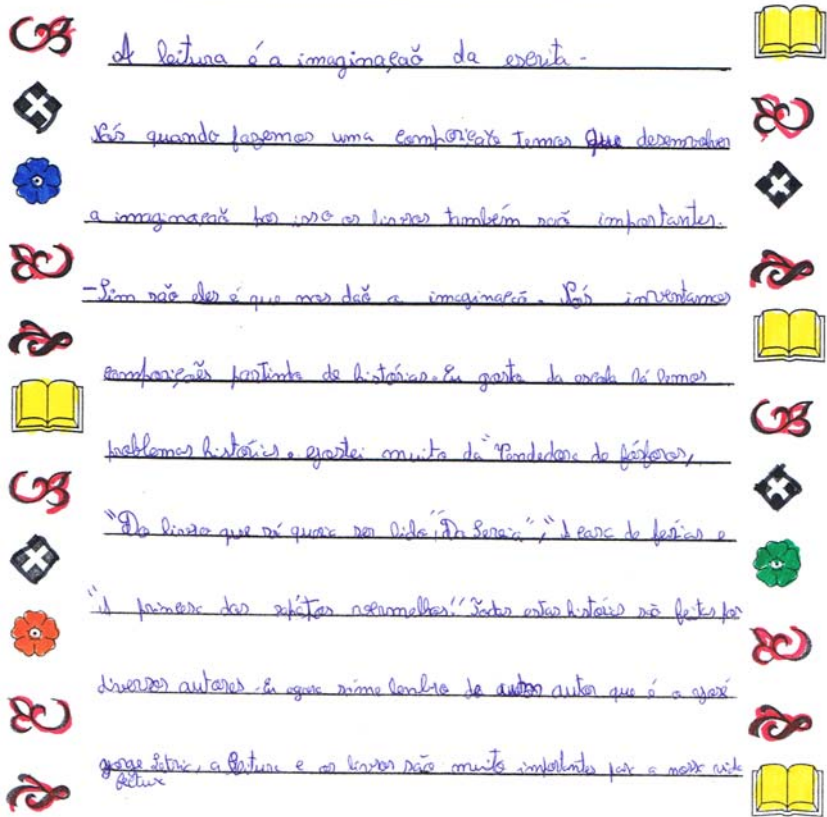 A leitura é a imaginação da escrita.
Nós quando fazemos uma composição temos que desenvolver
a imaginação por isso os livros também são importantes.
-Sim são eles é que nos dão a imaginação. Nós inventamos
composições partindo de histórias. Eu gosto da escola lá lemos
problemas histórias. gostei muito da "Vendedora de fósforos,
"Do livro que só queria ser lido", "Da Sereia", "A casa de férias e
"A princesa dos sapatos vermelhos." Todas estas histórias são feitas por
diversos autores. Eu agora só me lembro de autor que é o José
Jorge Letria, a leitura e os livros são muito importantes par a nossa vida